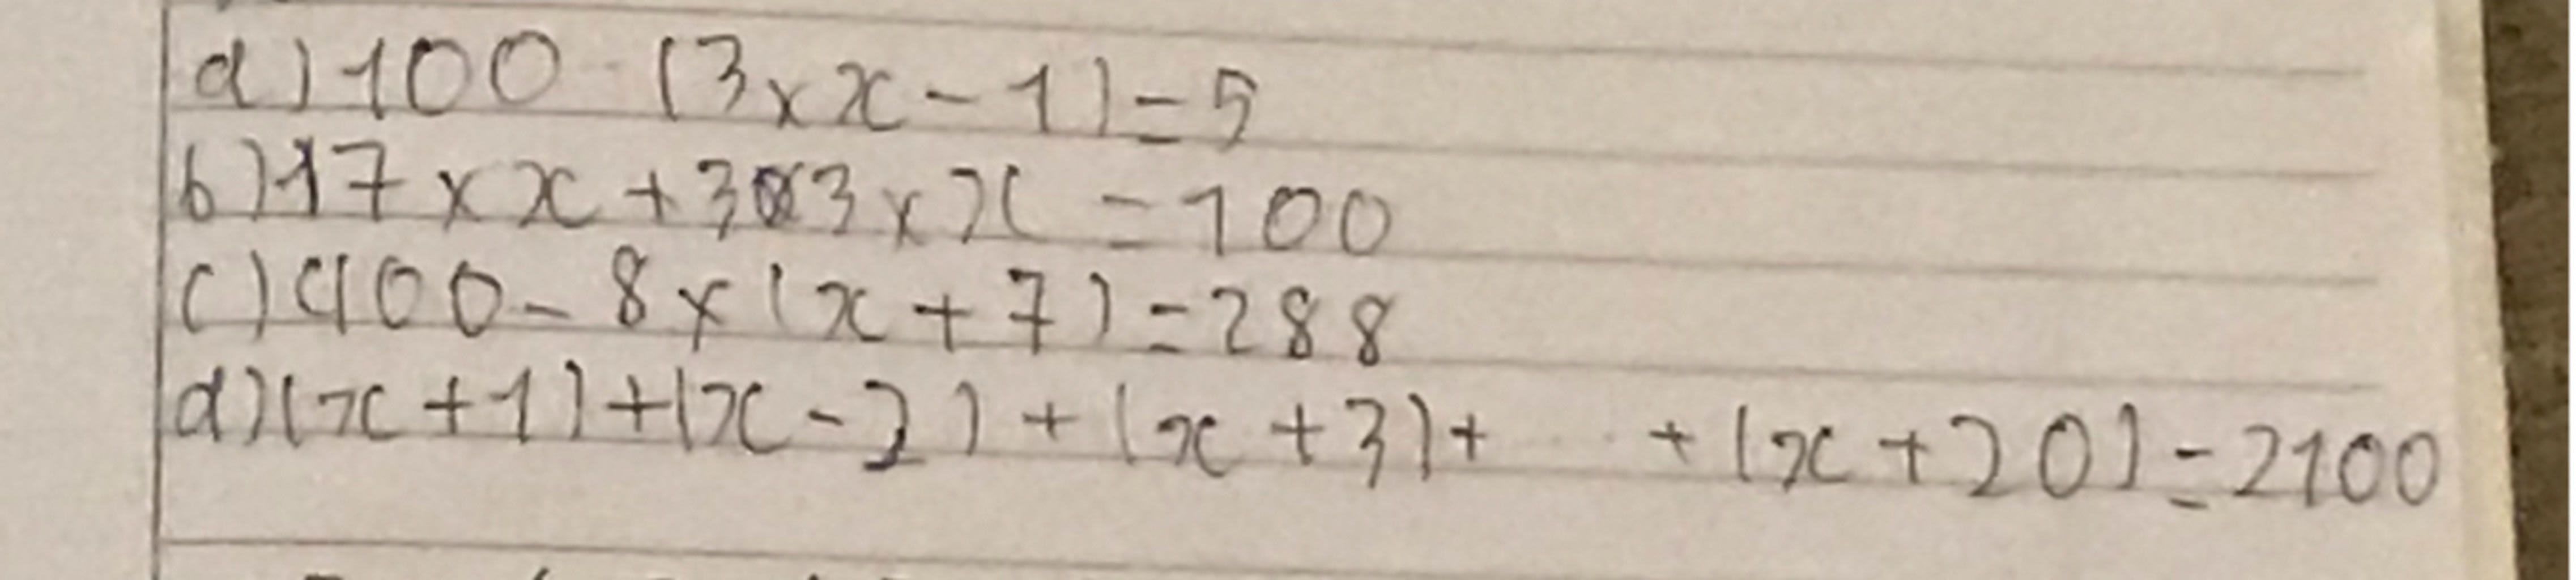 a) 100 - (3 x x - 1) = 5
b) 17 x x + 3 3 x x = 100
c) 400 - 8 x (x + 7) = 288
d) (x + 1) + (x - 2) + (x + 3) + + (x + 20) = 2100